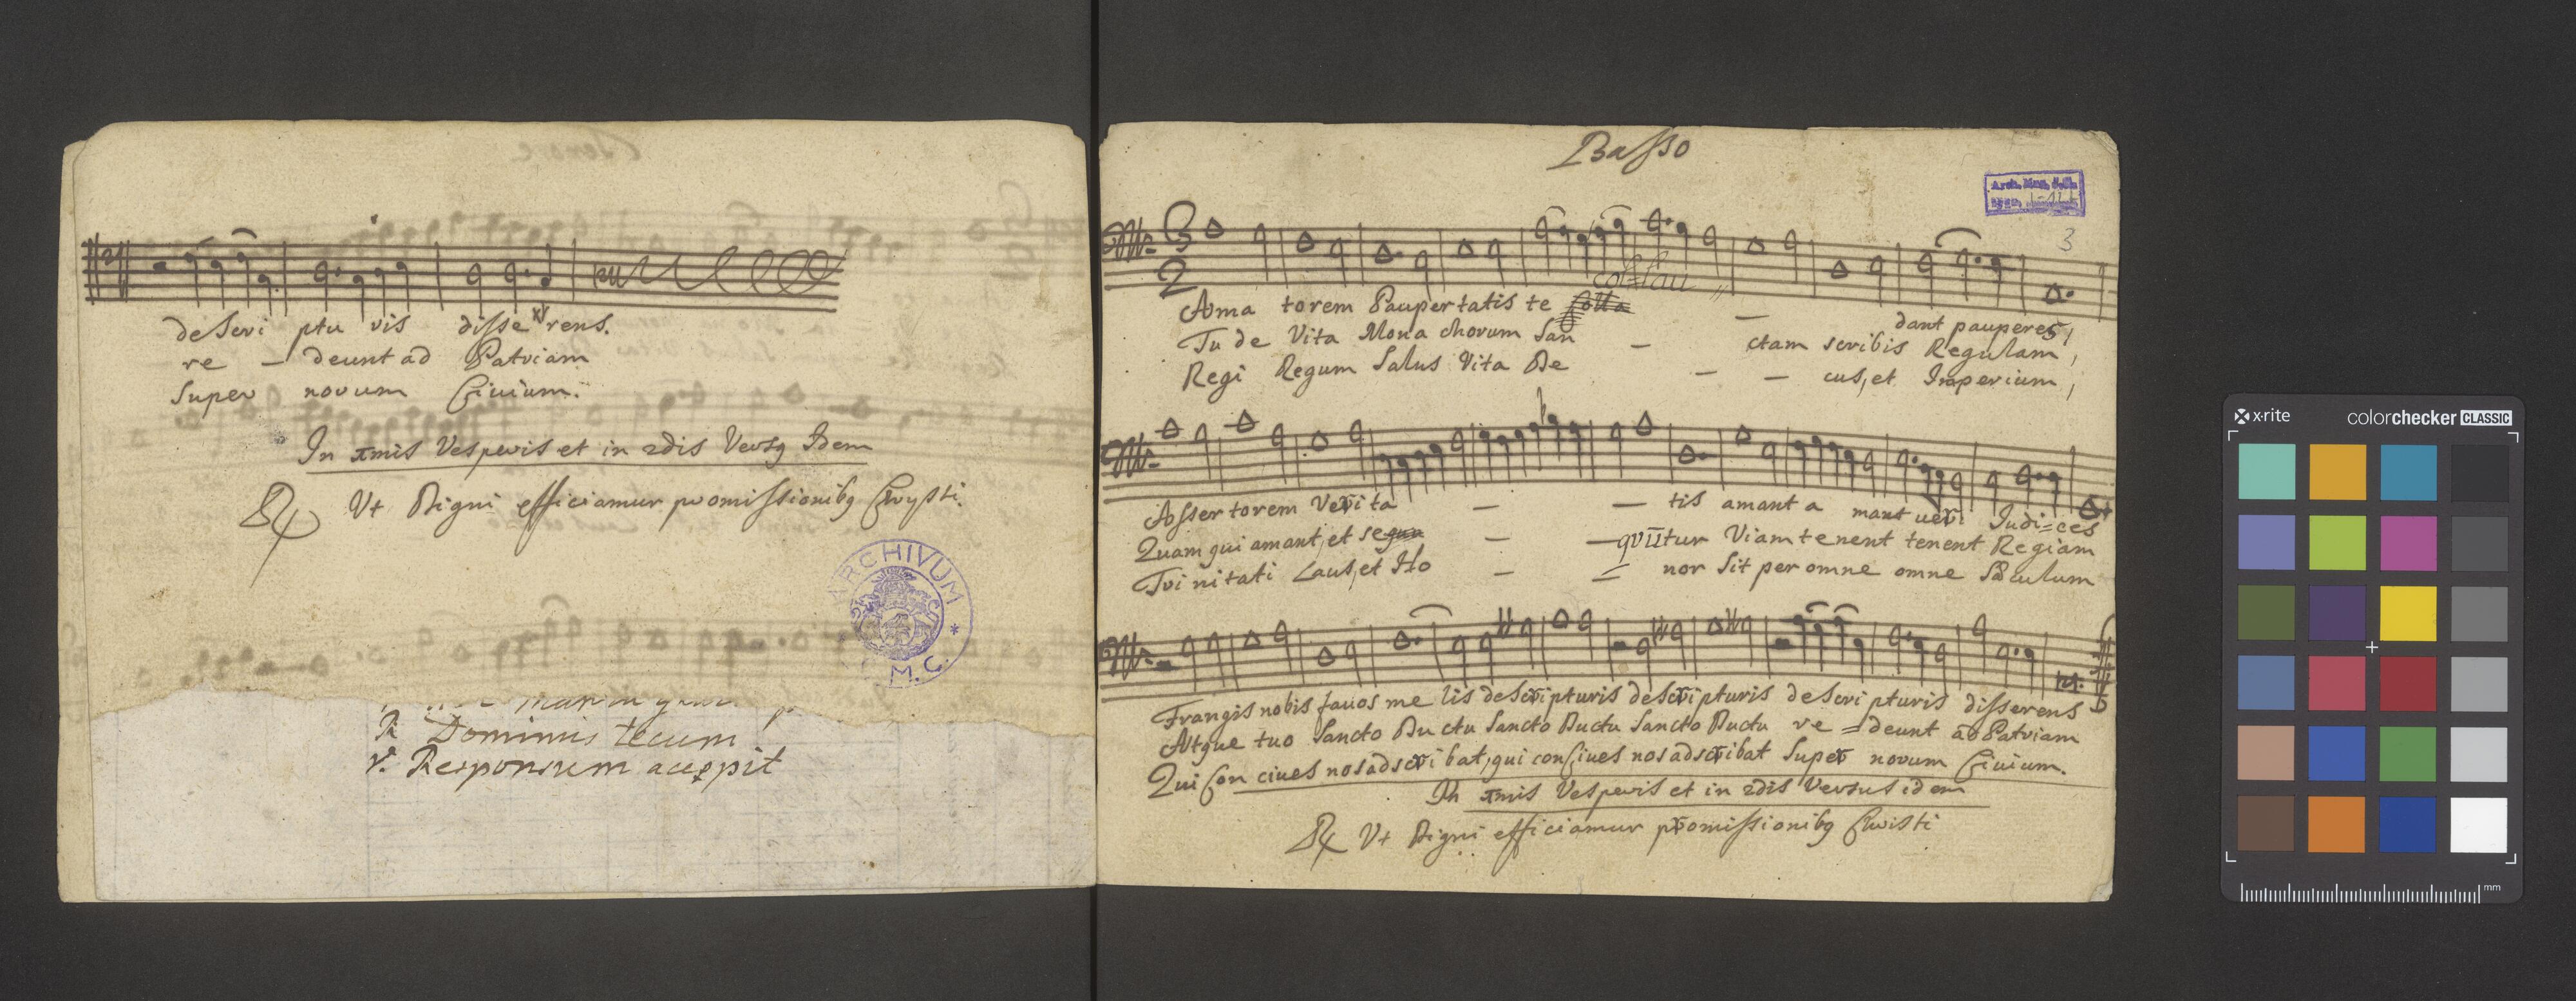 deScri ptu ris disse rens.
re - deunt ad Patriam
super novum Civium.
In xmis Vesperis et in 2dis Versq Idem
V+ Digni efficiamur promissionibq Chrysti.
ARCHIVUM
M. C.
Dominus tecum
v. Responsum accepit
Basso
3
3
2
collau
Ama torem Paupertatis te - dant pauperes,
Tu de Vita Mona chorum San - ctam scribis Regulam,
Regi Regum Salus Vita De - - cus, et Imperium,
Assertorem Verita - - tis amant a mant veri Judi=ces
Quam qui amant, et se - - quutur Viam tenent tenent Regiam
Trinitati Laus, et Ho - - nor Sit per omne omne Sæculum
Frangis nobis fauos me lis deScripturis deScripturis deScri pturis disserens
Atque tuo Sancto Ductu Sancto Ductu Sancto Ductu re = deunt ad Patriam
Qui Con ciues nos adscri bat, qui conCiues nos adscribat Super novum Civium.
In xmis Vesperis et in 2dis Versus idem
V+ Digni efficiamur promissionibq Christi
x-rite colorchecker CLASSIC
mm